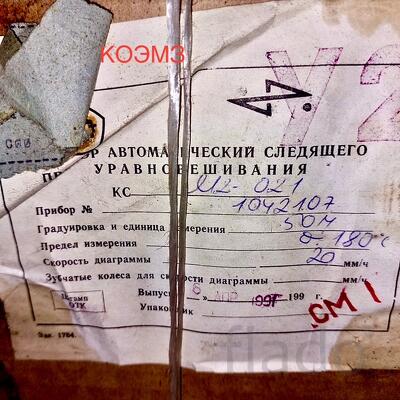 КОЭМЗ
У2
С60
АВТОМАТИЧЕСКИЙ СЛЕДЯЩЕГО
УРАВНОВЕШИВАНИЯ
КС У2-021
Прибор № 1042107
Градуировка и единица измерения 50М
Предел измерения 0-180°С
Скорость диаграммы 20 мм/ч
Зубчатые колеса для скорости диаграммы мм/ч
Штамп
ОТК
Выпуск « 8 » АПР 1991 199 г.
Упаковщик
СМ 1
Зак. 1764.